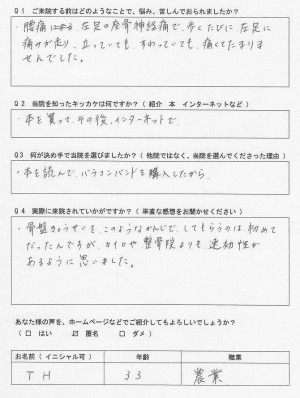 Q1 ご来院する前はどのようなことで、悩み、苦しんでおられましたか？
・腰痛による、左足の座骨神経痛で、歩くたびに、左足に
痛みが走り、立っていても、すわっていても、痛くてたまりま
せんでした。
Q2 当院を知ったキッカケは何ですか？（ 紹介 本 インターネットなど ）
・本を買って、その後、インターネットで、
Q3 何が決め手で当院を選びましたか？（ 他院ではなく、当院を選んでくださった理由 ）
・本を読んで、バラコンバンドを購入したから、
Q4 実際に来院されていかがですか？（ 率直な感想をお聞かせください ）
・骨盤きょうせいを、このようなかんじで、してもらうのは、初めて
だったんですが、カイロや整骨院よりも、連動性が
あるように思いました。
あなた様の声を、ホームページなどでご紹介してもよろしいでしょうか？
（ □ はい ☑ 匿名 □ ダメ ）
お名前（ イニシャル可 ） 年齢 職業
T H 33 農業